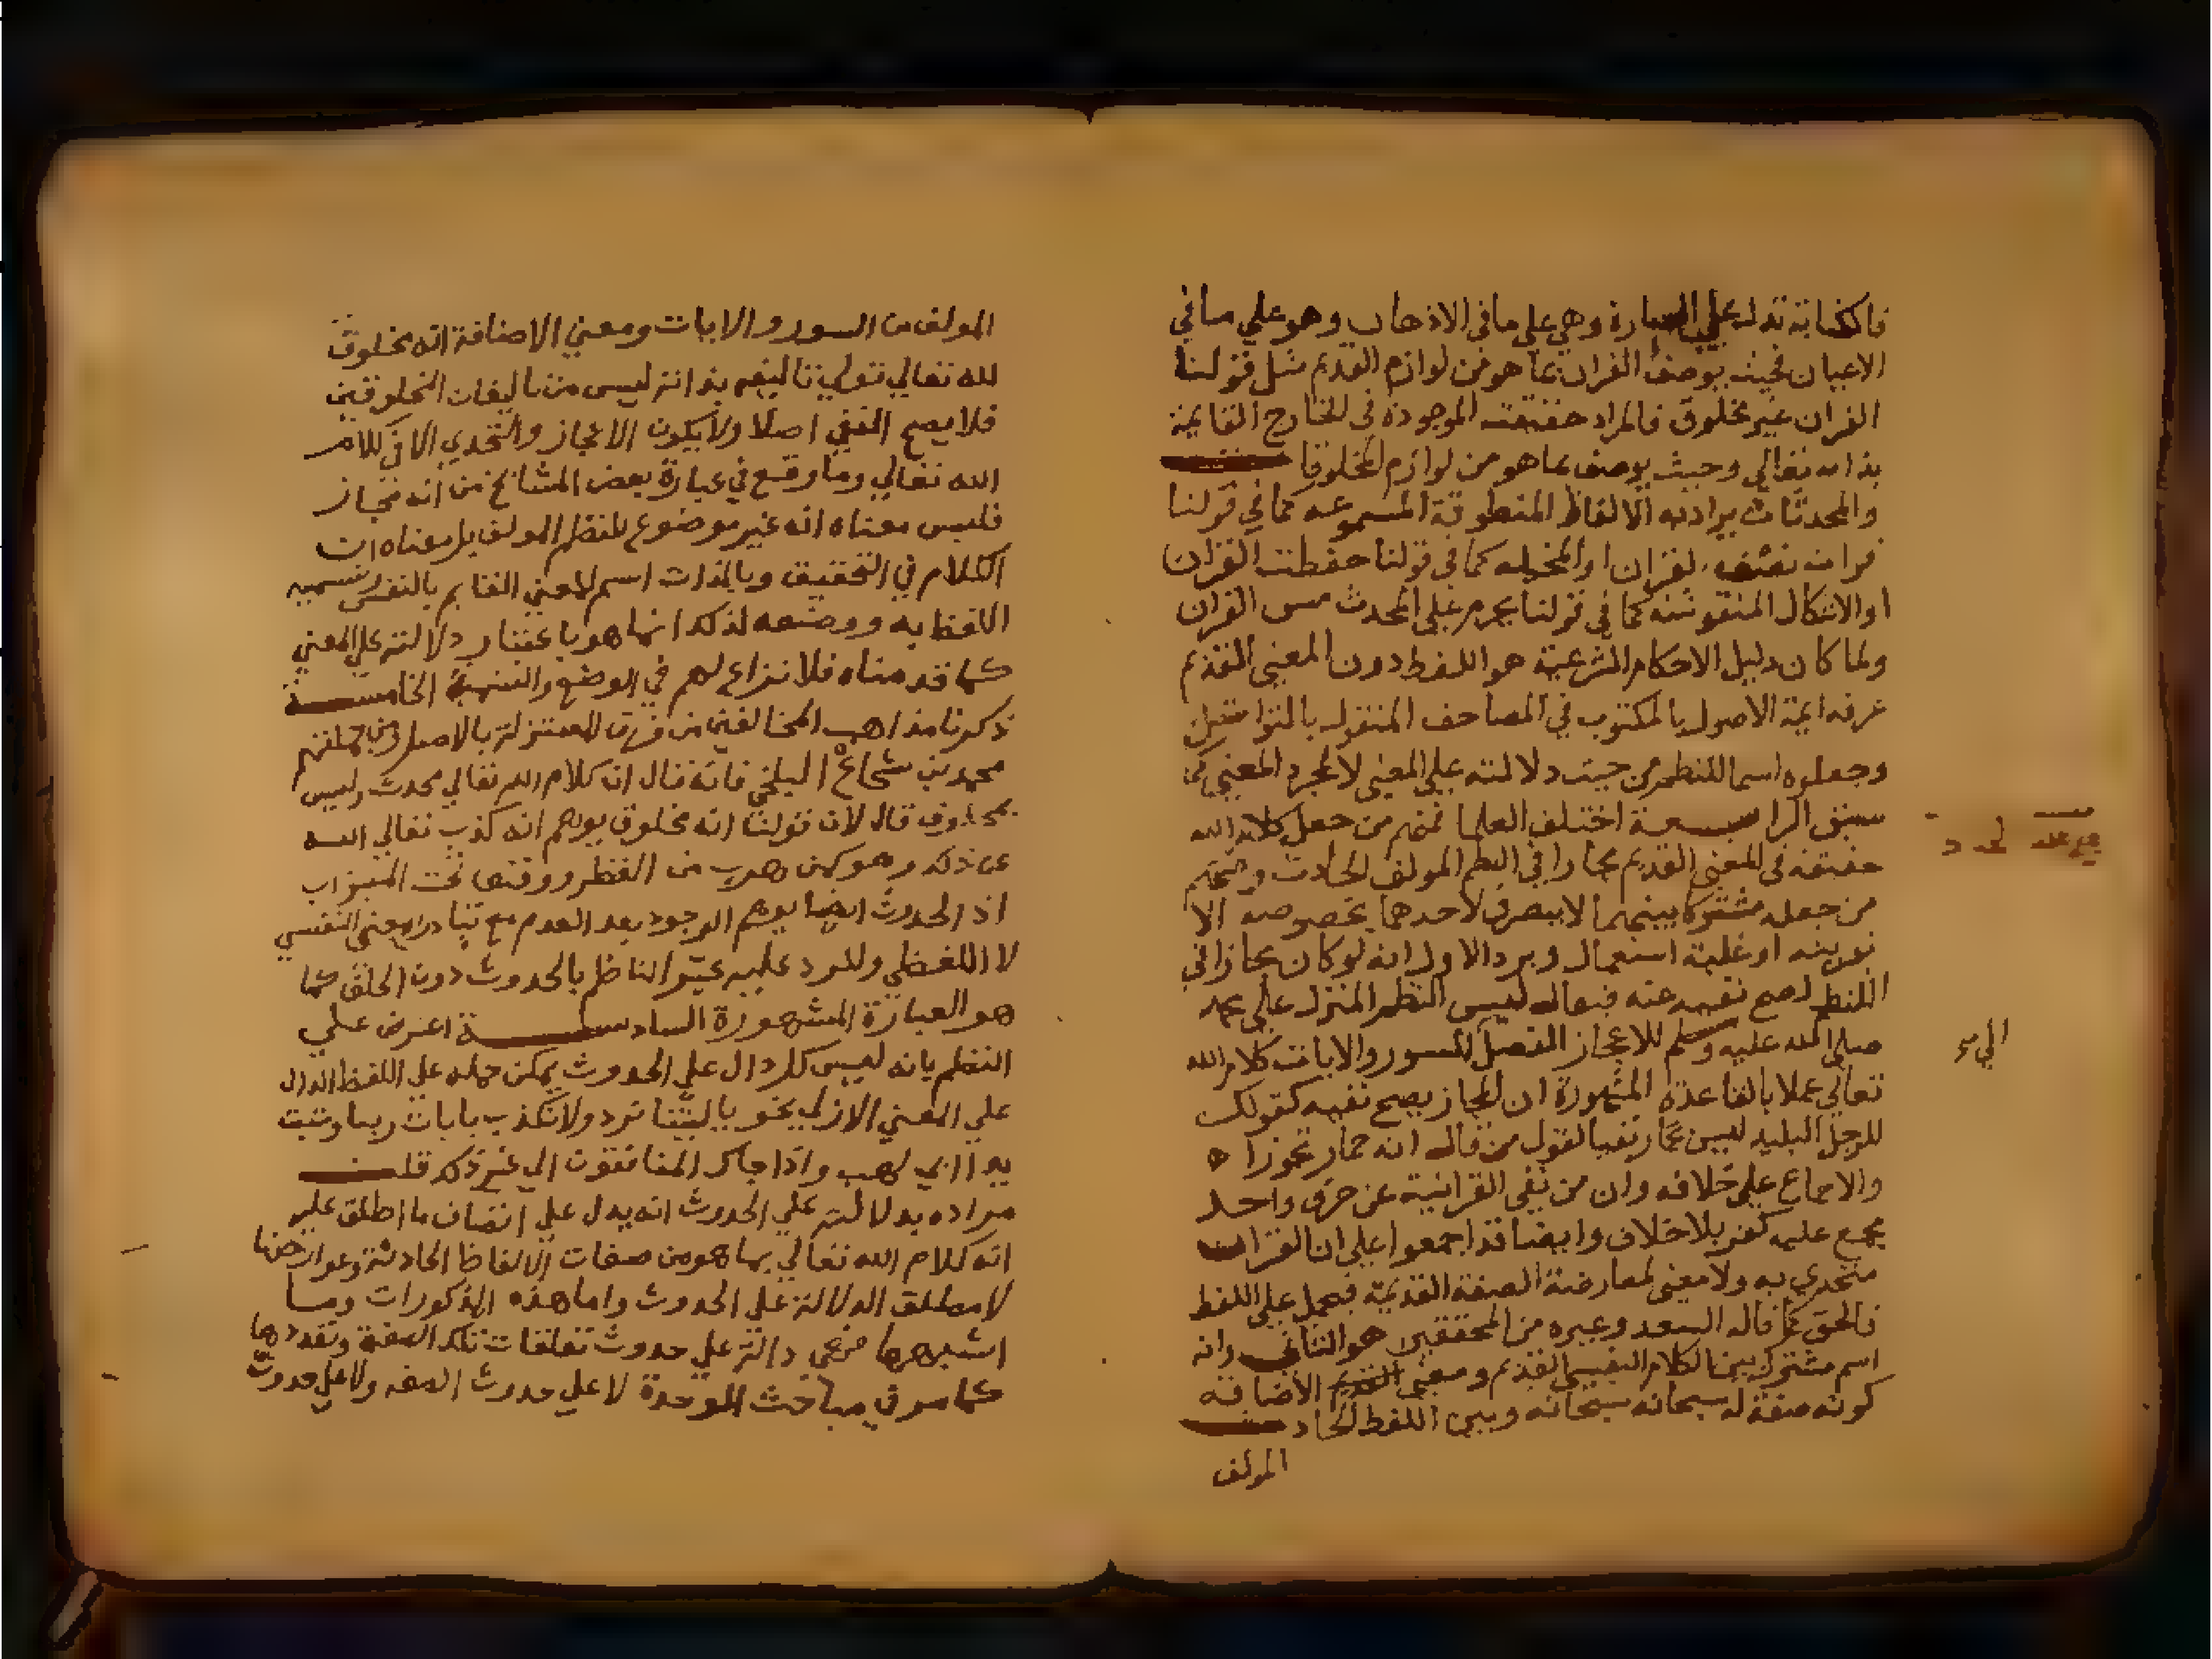 فالكتابة تدل علي العبارة وهي علي ما في الاذهان وهو علي ما في
الاعيان فحيث يوصف القران بما هو من لوازم القديم مثل قولنا
القران غير مخلوق فالمراد حقيقته الموجودة في الخارج القايمة
بذاته تعالي وحيث يوصف بما هو من لوازم المخلوقات
والمحدثات يراد به الالفاظ المنطوقة المسموعه كما في قولنا
قرات نصف القران او المخيله كما في قولنا حفظت القران
او الاشكال المنقوشة كما في قولنا يحرم علي المحدث مس القران
ولما كان دليل الاحكام الشرعية هو اللفظ دون المعني القديم
عرفه ايمة الاصول بالمكتوب في المصاحف المنقول بالتواتر
وجعلوه اسما للنظم من حيث دلالته علي المعني لا لمجرد المعني كما
سبق الرابعة اختلف العلما فمنهم من جعل كلام الله
حقيقة في المعني القديم مجازا في النظم المولف الحادث ومنهم
من جعله مشتركا بينهما لا ينصرف لاحدهما بخصوصه الا
بقرينه او غلبة استعمال ويرد الاول انه لو كان مجازا في
اللفظ لصح نفيه عنه فيقال ليس النظم المنزل علي محمد
صلي الله عليه وسلم للاعجاز المفصل للسور والايات كلام الله
تعالي عملا بالقاعدة المشهورة ان المجاز يصح نفيه كقولك
للرجل البليد ليس بحمار نفيا لقول من قال انه حمار تجوزا
والاجماع علي خلافه وان من نفي القرانية عن حرف واحد
مجمع عليه كفر بلا خلاف وايضا قد اجمعوا علي ان القران
متحدي به ولا معني لمعارضة الصفة القديمة فيحمل علي اللفظ
فالحق كما قاله السعد وغيره من المحققين هو الثاني وانه
اسم مشترك بين الكلام النفسي القديم ومعني الاضافه
كونه صفة له سبحانه سبحانه وبين اللفظ الحادث
المولف
المولف من السور والايات ومعني الاضافة انه مخلوق
لله تعالي تولي تاليفه بذاته ليس من تاليفات المخلوقين
فلا يصح النفي اصلا ولا يكون الاعجاز والتحدي الا في كلام
الله تعالي وما وقع في عبارة بعض المشائخ من انه مجاز
فليس معناه انه غير موضوع للنظم المولف بل معناه ان
الكلام في التحقيق وبالذات اسم للمعني القايم بالنفس وتسميه
اللفظ به ووضعه لذلك انما هو باعتبار دلالته علي المعني
كما قدمناه فلا نزاع لهم في الوضع والتسمية الخامسة
ذكرنا مذاهب المخالفين من فرق المعتزلة بالاصل ومن جملتهم
محمد بن شجاع البلخي فانه قال ان كلام الله تعالي محدث وليس
بمخلوق قال لان قولنا انه مخلوق يوهم انه كذب تعالي الله
عن ذلك وهو كمن هرب من القطر ووقف تحت الميزاب
اذ الحدوث ايضا يوهم الوجود بعد العدم مع تبادر المعني النفسي
لا اللفظي وللرد عليه عبر الناظم بالحدوث دون الخلق كما
هو العبارة المشهورة السادسة اعترض علي
النظم بانه ليس كل دال علي الحدوث يمكن حمله علي اللفظ الدال
علي المعني الازلي نحو ياليتنا نرد ولا نكذب بايات ربنا وتبت
يدا ابي لهب واذا جاك المنافقون الي غير ذلك قلت
مراده بدلالته علي الحدوث انه يدل علي اتصاف ما اطلق عليه
انه كلام الله تعالي بما هو من صفات الالفاظ الحادثة وعوارضها
لا مطلق الدلالة علي الحدوث واما هذه المذكورات وما
اشبهها فهي دالة علي حدوث تعلقات تلك الصفة وتعددها
كما مر في مباحث الوحدة لا علي حدوث الصفه ولا علي حدوث